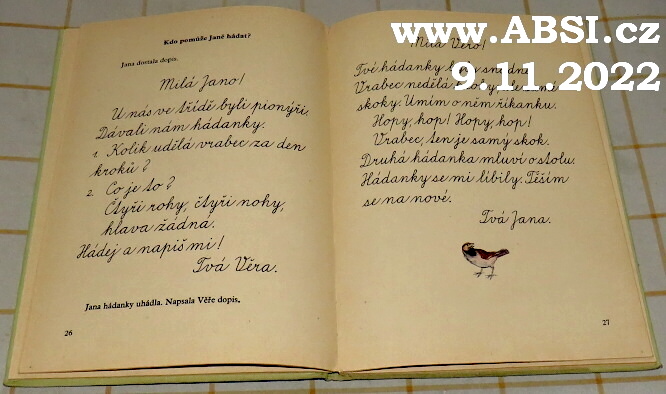 Kdo pomůže Janě hádat?
Jana dostala dopis.
Milá Jano!
U nás ve třídě byli pionýři.
Dávali nám hádanky.
1. Kolik udělá vrabec za den
kroků?
2. Co je to?
Čtyři rohy, čtyři nohy,
hlava žádná.
Hádej a napiš mi!
Tvá Věra.
Jana hádanky uhádla. Napsala Věře dopis.
26
www.ABSI.cz
9.11.2022
Milá Věro!
Tvé hádanky
Vrabec nedělá
skoky. Umím o něm říkanku.
Hopy, hop! Hopy, hop!
Vrabec, ten je samý skok.
Druhá hádanka mluví o stolu.
Hádanky se mi líbily. Těším
se na nové.
Tvá Jana.
27